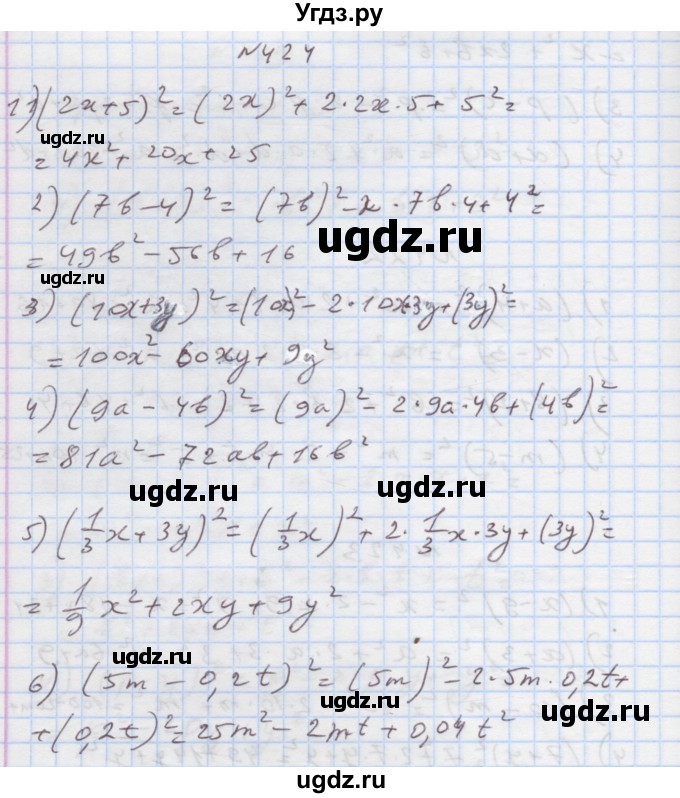 Угдз.ру
№424
1) (2x+5)² = (2x)² + 2·2x·5 + 5² =
ugdz.ru
= 4x² + 20x + 25
2) (7b-4)² = (7b)² - 2·7b·4 + 4² =
ugdz.ru
= 49b² - 56b + 16
ugdz.ru
3) (10x+3y)² = (10x)² - 2·10x·3y + (3y)² =
= 100x² - 60xy + 9y²
4) (9a - 4b)² = (9a)² - 2·9a·4b + (4b)² =
= 81a² - 72ab + 16b²
ugdz.ru ugdz.ru
5) (1/3x + 3y)² = (1/3x)² + 2·1/3x·3y + (3y)² =
= 1/9x² + 2xy + 9y²
ugdz.ru
6) (5m - 0,2t)² = (5m)² - 2·5m·0,2t +
ugdz.ru
+ (0,2t)² = 25m² - 2mt + 0,04t²
ugdz.ru
ugdz.ru